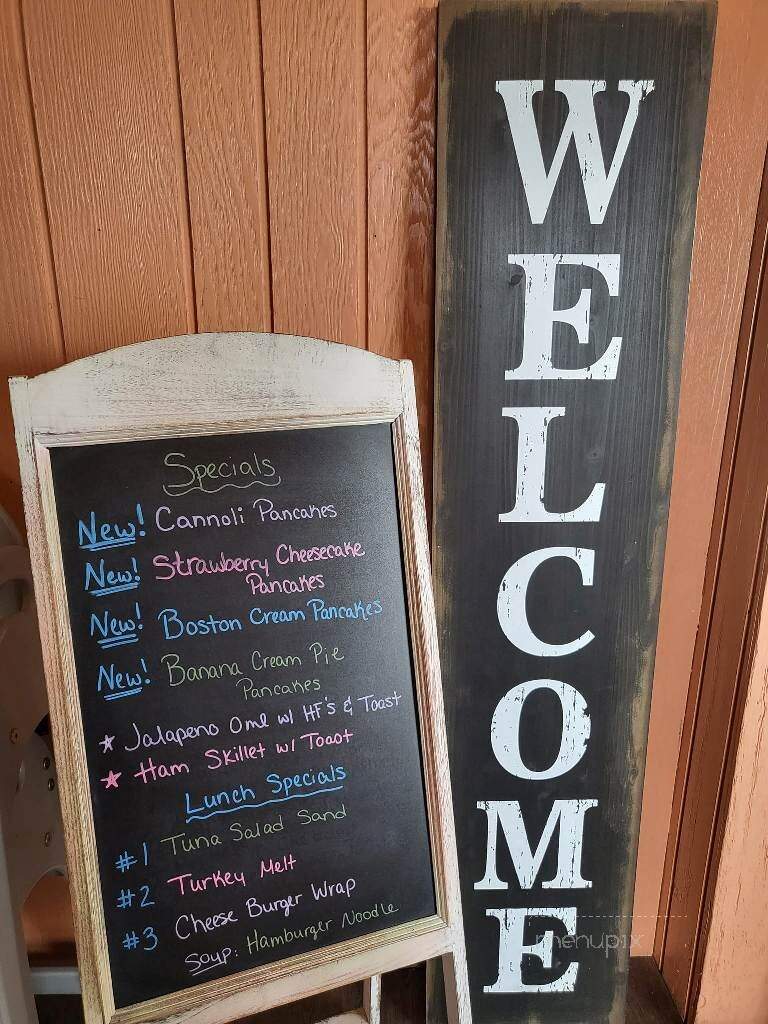 Specials
New! Cannoli Pancakes
New! Strawberry Cheesecake
Pancakes
New! Boston Cream Pancakes
New! Banana Cream Pie
Pancakes
★ Jalapeno Oml w/ HF's & Toast
★ Ham Skillet w/ Toast
Lunch Specials
#1 Tuna Salad Sand
#2 Turkey Melt
#3 Cheese Burger Wrap
Soup: Hamburger Noodle
WELCOME
menupix